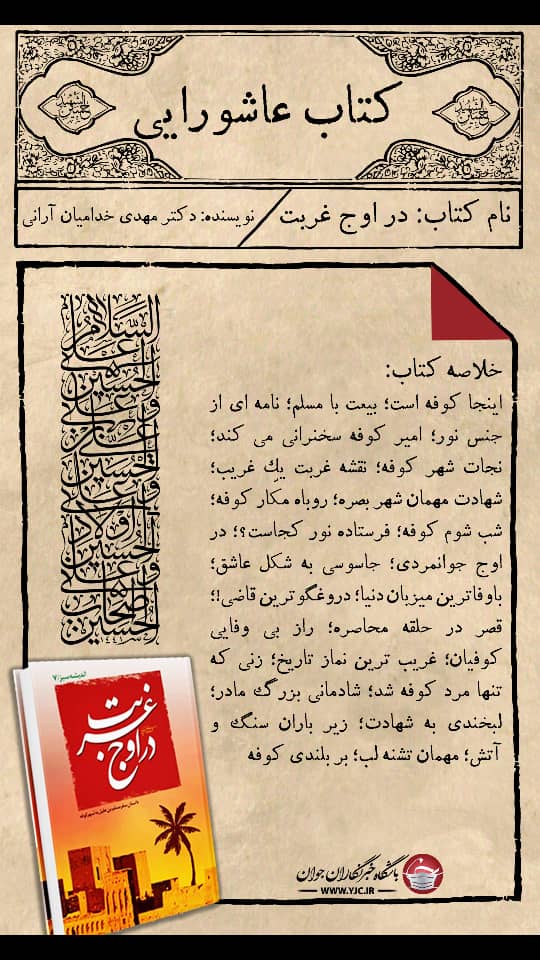 کتاب عاشورایی
نام کتاب: در اوج غربت / نویسنده: دکتر مهدی خدامیان آرانی
خلاصه کتاب:
اینجا کوفه است؛ بیعت با مسلم؛ نامه ای از
جنس نور؛ امیر کوفه سخنرانی می کند؛
نجات شهر کوفه؛ نقشه غربت یک غریب؛
شهادت مهمان شهر بصره؛ روباه مکّار کوفه؛
شب شوم کوفه؛ فرستاده نور کجاست؟؛ در
اوج جوانمردی؛ جاسوسی به شکل عاشق؛
باوفاترین میزبان دنیا؛ دروغگوترین قاضی!؛
قصر در حلقه محاصره؛ راز بی وفایی
کوفیان؛ غریب ترین نماز تاریخ؛ زنی که
تنها مرد کوفه شد؛ شادمانی بزرگ مادر؛
لبخندی به شهادت؛ زیر باران سنگ و
آتش؛ مهمان تشنه لب؛ بر بلندی کوفه
السلام
علی
الحسین
و علی
علی بن
الحسین
و علی
اولاد
الحسین
و علی
اصحاب
الحسین
اندیشه سبز/۷
در اوج غربت
باشگاه خبرنگاران جوان
WWW.YJC.IR